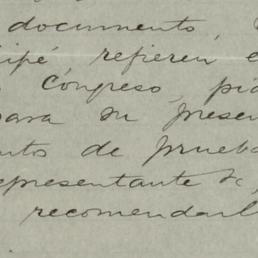 documento,
refieren
Congreso,
para su presen
ntos de prueba
epresentante de
recomendarl